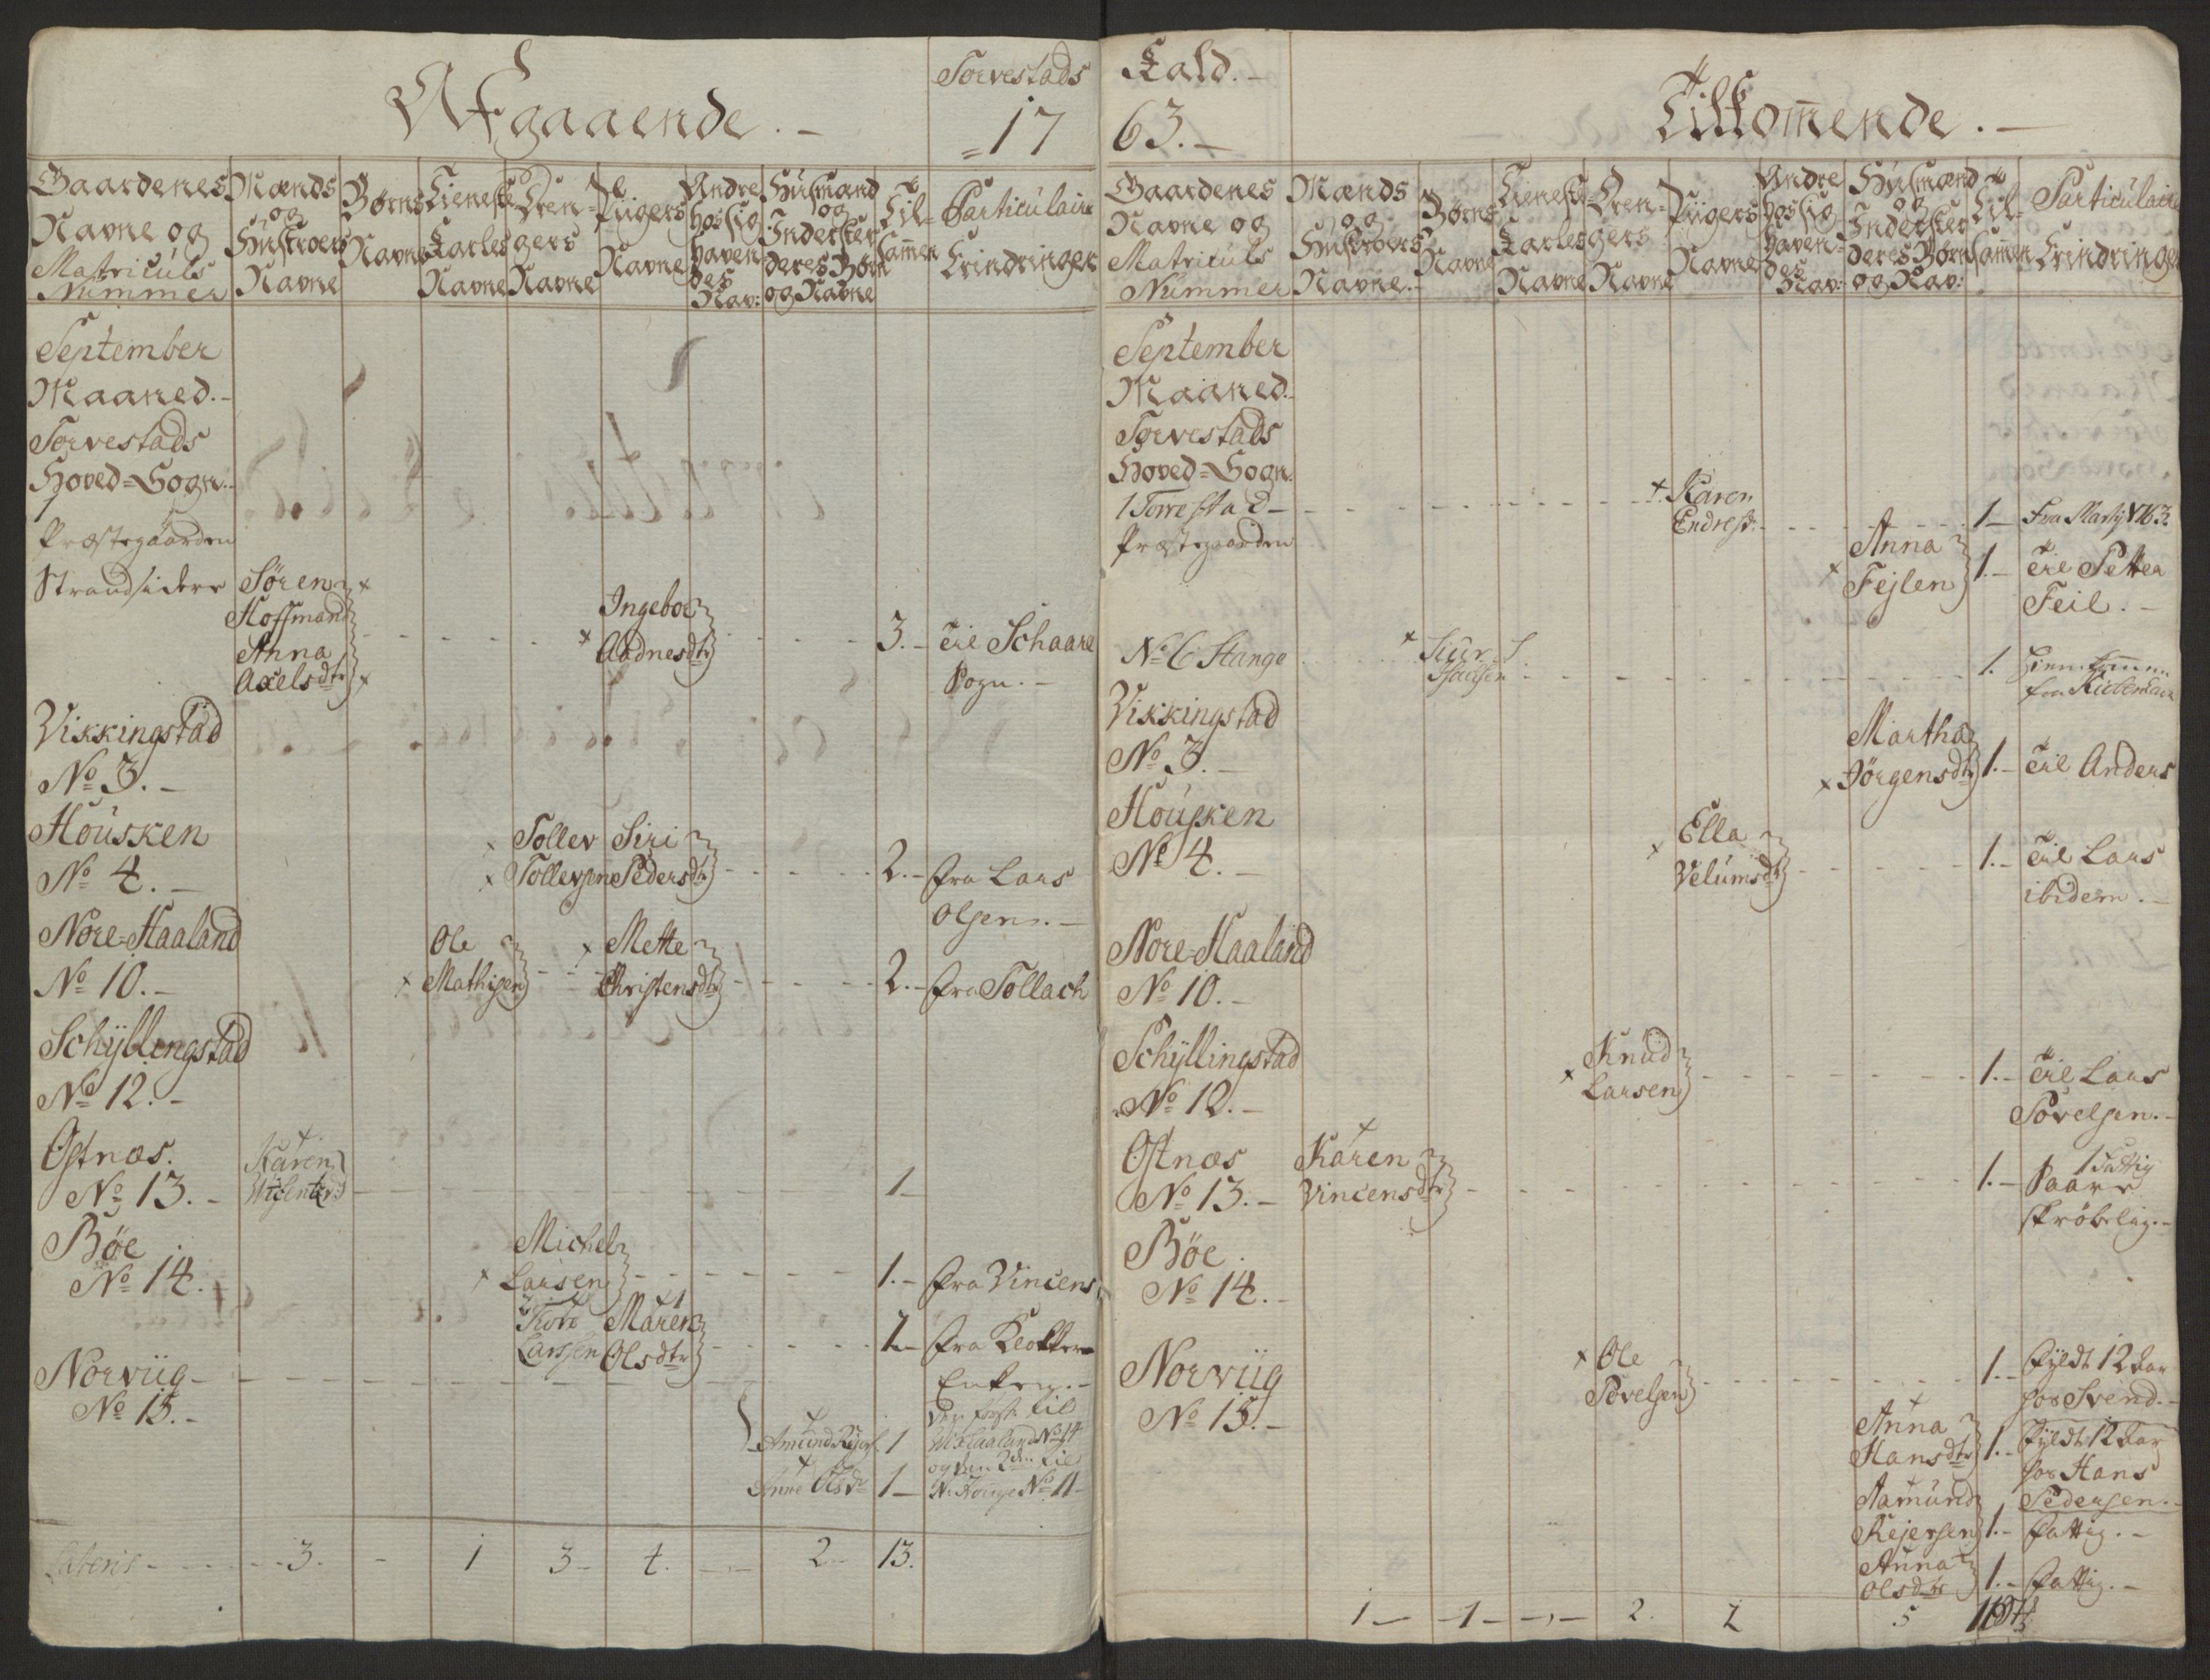 Afgaaende.-
Torvestads
=17
Gaardenes
Navne og
Matriculs
Nummer
Mænds
og
Hustroers
Navne
Børns
Navne
Tieneste
Karles
Navne
Dren-
gers
Navne
Piigers
Navne
Andre
hos sig
haven-
des
Nav:
Husmænd
og
Inderster
deres Børn
og Navne
Til-
samen
Particulaire
Erindringer
September
Maaned.-
Torvestads
Hoved=Sogn.-
1
Præstegaarden
Strandsidere
Søren
Hoffmand
Anna
Axelsdtr
Ingebor
Aadnesdtr
3.- til Schaare
Sogn.-
Vikkingstad
No 3.-
Housken
No 4.-
Tollev
Tollevsen
Siri
Pedersdtr
2.- fra Lars
Olsen.-
Nore-Haaland
No 10.-
Ole
Mathisen
Mette
Christensdtr
2.- fra Tollach
Schÿllingstad
No 12.-
Ostnæs.
No 13.-
Karen
1-
Böe
No 14.
Michel
Larsen
1.- fra Vincens
Tore
Larssen
Maren
Olsdtr
fra Klokker
Enken.-
Norviig-
No 15.-
Amund Rejers. 1
Anne Olsdr 1-
og den 2den til
No 11-
Lateris - 3. - 1 3- 4. - 2- 13.
Kald.-
63.-
Tilkommende.-
Gaardenes
Navne og
Matriculs
Nummer
Mænds
og
Hustroers
Navne.-
Børns
Navne
Tieneste
Karles
Navne
Dren-
gers
Navne
Piigers
Navne
Andre
hos sig
haven-
des
Nav:
Husmænd
og
Inderster
deres Børn
og Nav:
Til-
samen
Particulaire
Erindringer
September
Maaned.
Torvestads
Hoved=Sogn.
1 Torrestad-
Præstegaarden
Karen
Endresdr
1-
Anna
Fejlen
1.- til Petter
Feil.-
No 6 Stange
Siur
Isacsen
1.
fra
Vikkingstad
No 3.-
Martha
Jörgensdtr
1.- til Anders
Housken
No 4.-
Ella
Velumsdtr
1.- til Lars
ibidem.-
Nore-Haaland
No 10.-
Schÿllingstad
No 12.-
Knud
Larsen
1.- til Lars
Povelsen.-
Ostnæs
No 13.-
Karen
Vincensdtr
1.-
skröbelig.-
Böe.
No 14.-
Norviig
No 15.-
Ole
Povelsen
1.- fyldt 12 Aar
hos Svend.-
Anna
Hansdtr
1.- fyldt 12 Aar
hos Hans
Pedersen.-
Aamund
Rejersen
1.- fattig.-
Anna
Olsdtr
1.- fattig.-
1- -1- -,- 2. 2 5